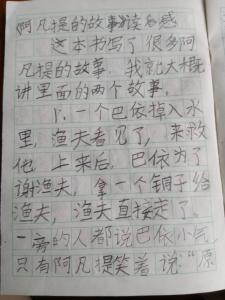 《阿凡提的故事》读后感
这本书写了很多阿
凡提的故事，我就大概
讲里面的两个故事。
1.一个巴依掉入水
里，渔夫看见了，来救
他，上来后，巴依为了
谢渔夫，拿一个铜子给
渔夫，渔夫直接走了。
一旁的人都说巴依小气，
只有阿凡提笑着说：“原